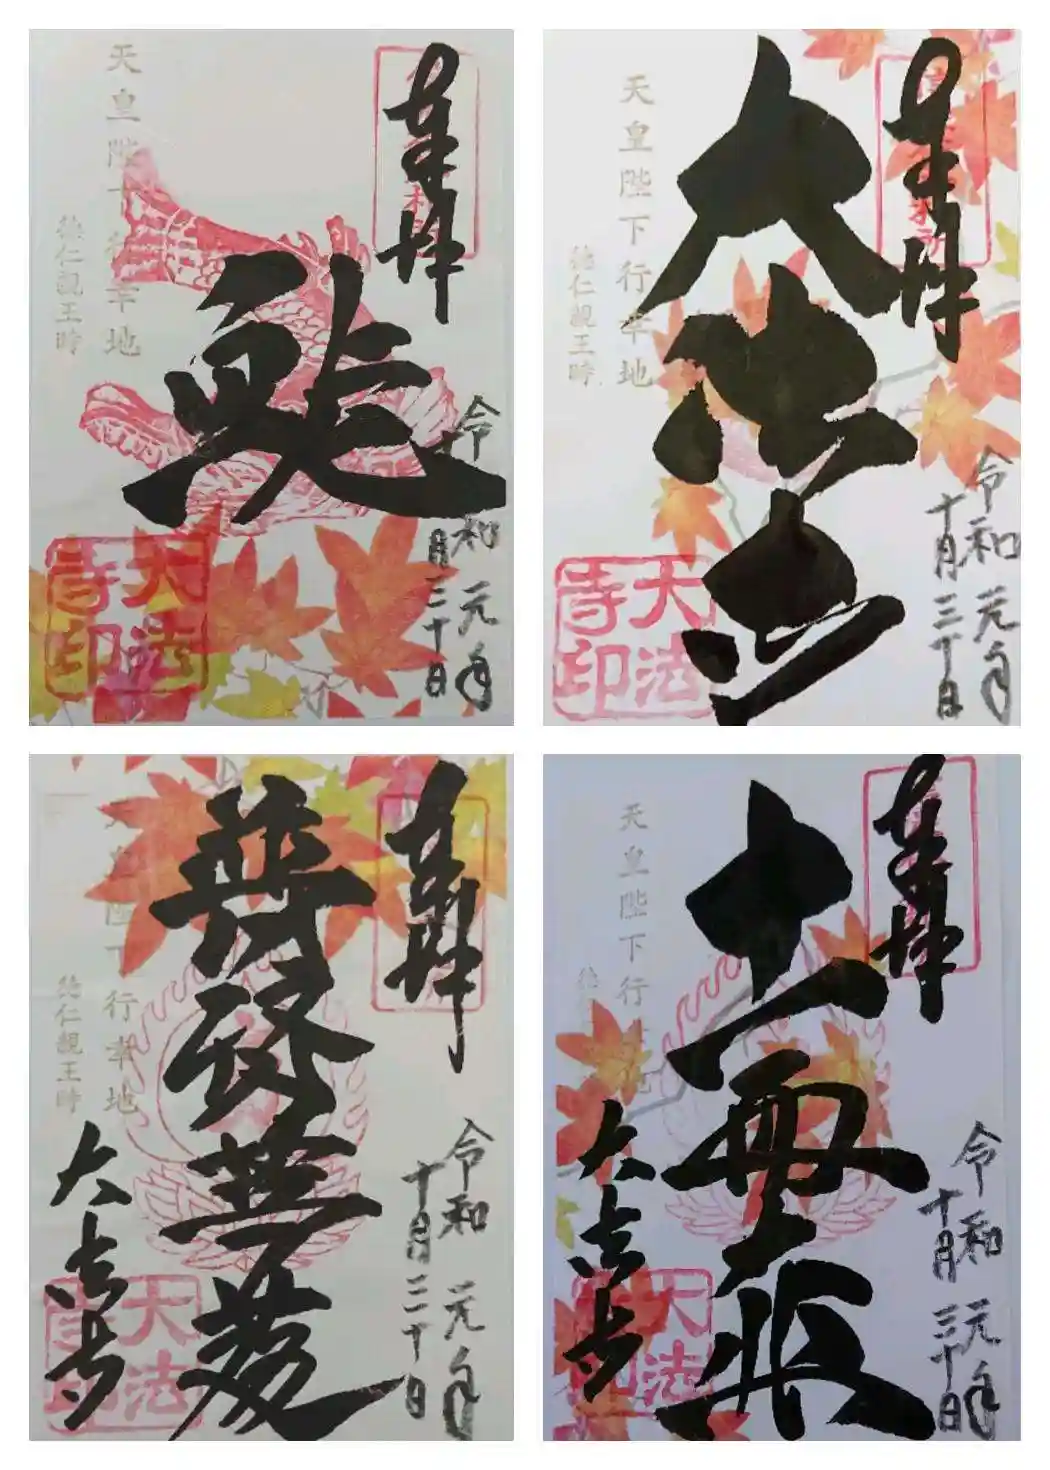 奉拝
令和元年
十月三十日
天皇陛下行幸地
徳仁親王時
大法寺印
奉拝
大法寺
令和元年
十月三十日
天皇陛下行幸地
徳仁親王時
大法寺印
奉拝
普賢菩薩
令和元年
十月三十日
天皇陛下行幸地
徳仁親王時
大法寺
大法寺印
奉拝
十一面
令和元年
十月三十日
天皇陛下行幸地
大法寺
大法寺印